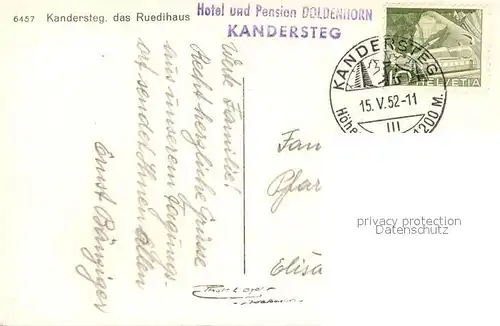 6457 Kandersteg. das Ruedihaus
Hotel und Pension DOLDENHORN
KANDERSTEG
HELVETIA
KANDERSTEG
15. V. 52-11
Höhe 1200 M.
III
Werte Familie!
Recht herzliche Grüsse
aus unserem Tagungs-
ort sendet Ihnen allen
Ernst Bänziger
Fam
Pfar
Elisa
privacy protection
Datenschutz